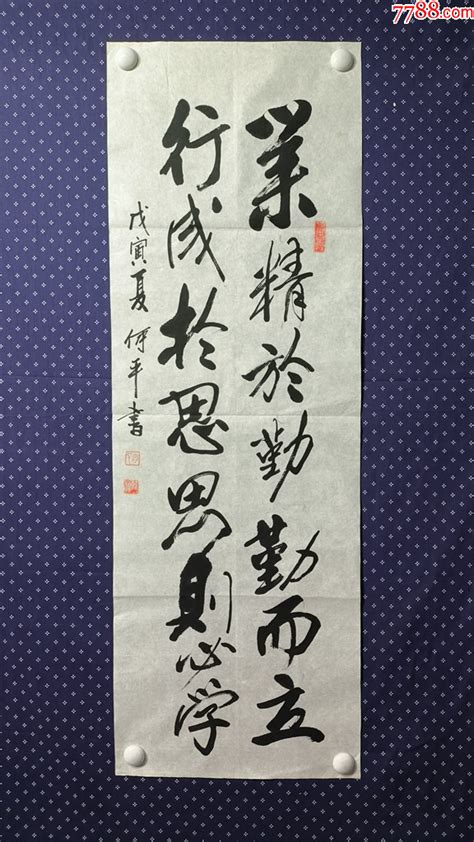 7788.com
業精於勤勤而立
行成於思思則必学
戊寅夏何平書